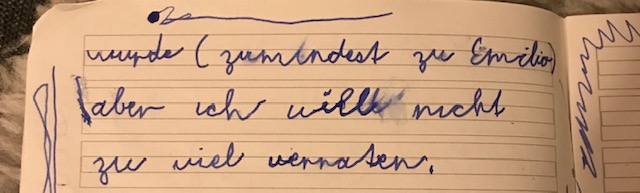 wurde (zumindest zu Emilio)
aber ich will nicht
zu viel verraten.